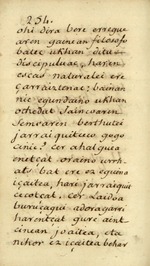 254.
ohi dira bere erregue
aren gainean filosofo
batec ukhan ditu
discipuluac, haren
escas naturalei ere
jarraiztenac; baiman
nic egundaino ukhan
othedut Jaincoaren,
semearen berthutei
jarraiquitceco gogo
cinic? Cer ahalguea
enetçat oraino urrh
ats bat ere ez eguina
içaitea, hari jarraiquit
cecotçat, cor Laidoa
buruçagui adoragarri
harentçat gure aint
cinean joaitea, eta
nihor ez içaitea behar